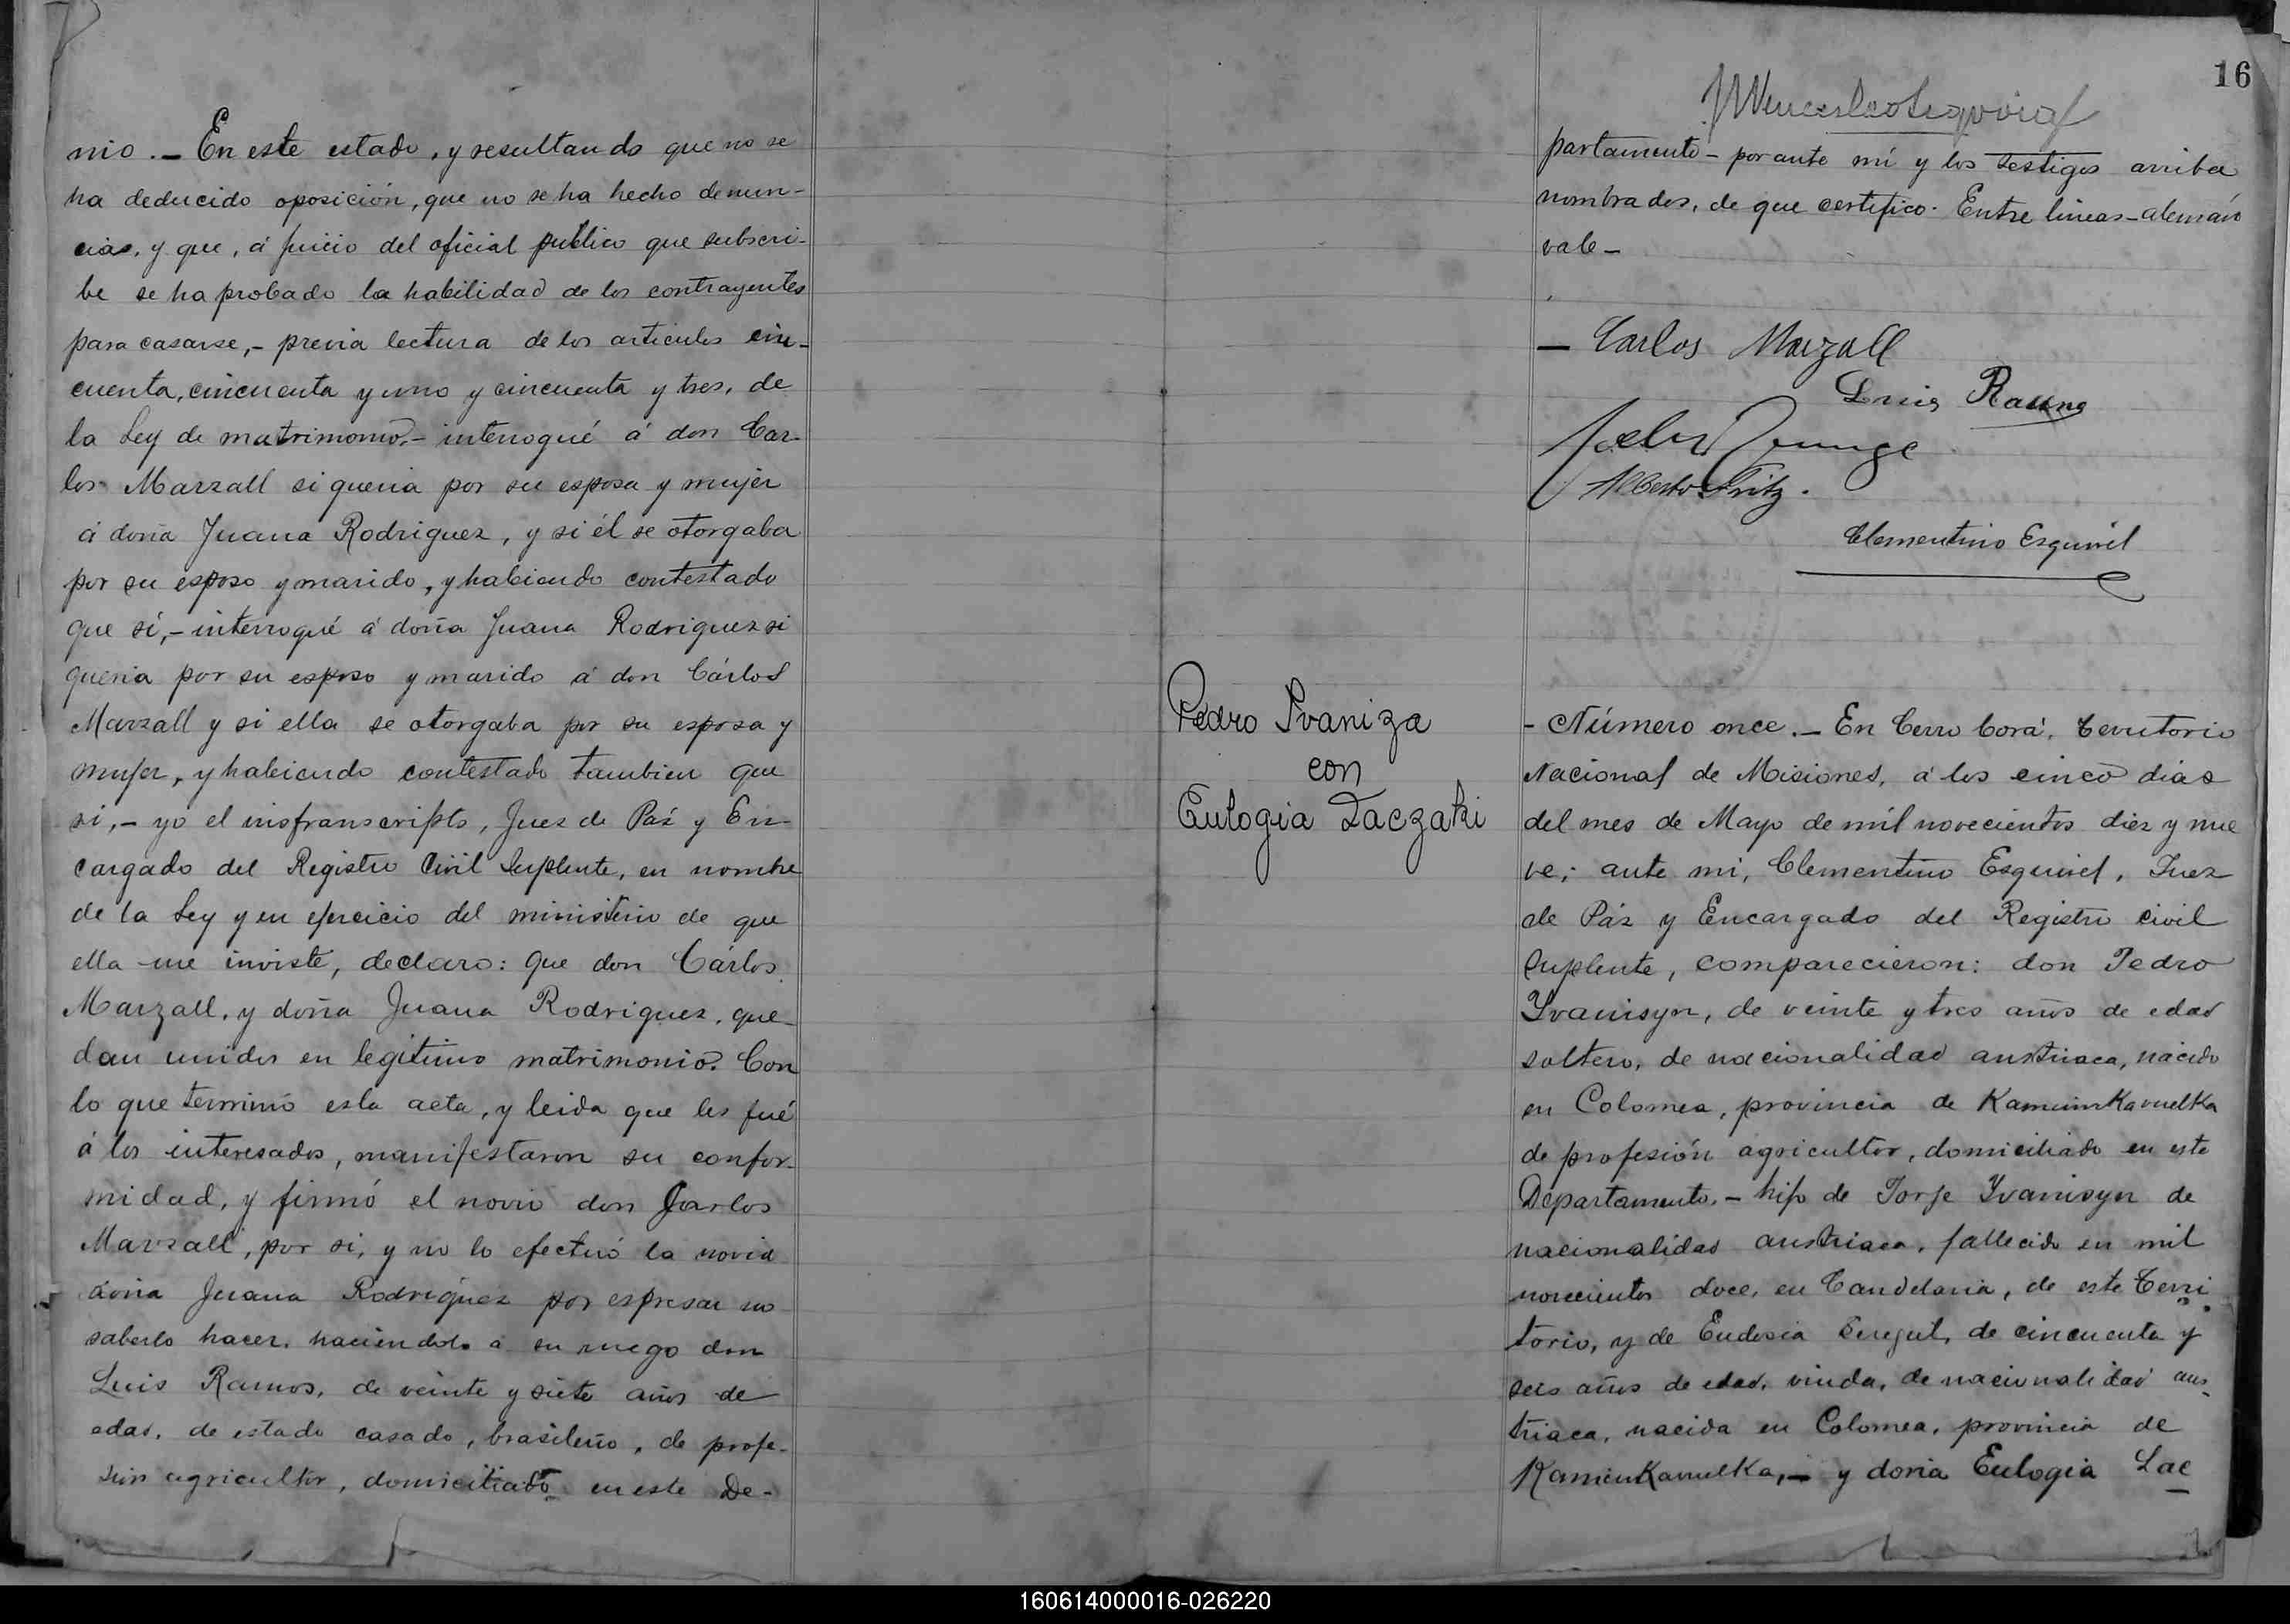 nio.– En este estado, y resultando que no se
ha deducido oposición, que no se ha hecho denun-
cias, y que, á juicio del oficial publico que subscri-
be se ha probado la habilidad de los contrayentes
para casarse,– previa lectura de los articulos cin-
cuenta, cincuenta y uno y cincuenta y tres, de
la Ley de matrimonio,– interrogué á don Car-
los Marzall si queria por su esposa y mujer
á doña Juana Rodriguez, y si él se otorgaba
por su esposo y marido, y habiendo contestado
que sí,– interrogué á doña Juana Rodriguez si
queria por su esposo y marido á don Cárlos
Marzall y si ella se otorgaba por su esposa y
mujer, y habiendo contestado tambien que
si,– yo el infranscripto, Juez de Páz y En-
cargado del Registro Civil Suplente, en nombre
de la Ley y en ejercicio del ministerio de que
ella me inviste, declaro: Que don Cárlos
Marzall, y doña Juana Rodriguez, que-
dan unidos en legitimo matrimonio. Con
lo que terminó esta acta, y leida que les fué
á los interesados, manifestaron su confor-
midad, y firmó el novio don Carlos
Marzall, por si, y no lo efectuó la novia
doña Juana Rodriguez por espresar no
saberlo hacer, haciendolo á su ruego don
Luis Ramos, de veinte y siete años de
edad, de estado casado, brasileño, de profe-
sión agricultor, domiciliado en este De-
16
partamento – por ante mí y los testigos arriba
nombrados, de que certifico. Entre lineas–alemán
vale–
– Carlos Marzall
Luis
Alberto Fritz.
Clementino Esquivel
Pedro Ivaniza
con
Eulogia Laczaki
– Número once.– En Cerro Corá, territorio
Nacional de Misiones, á los cinco dias
del mes de Mayo de mil novecientos diez y nue
ve; ante mi, Clementino Esquivel, Juez
de Páz y Encargado del Registro civil
Suplente, comparecieron: don Pedro
Yvanisyn, de veinte y tres años de edad
soltero, de nacionalidad austriaca, nacido
en Colomea, provincia de
de profesión agricultor, domiciliado en este
Departamento,– hijo de Jorje Yvanisyn de
nacionalidad austriaca, fallecido en mil
novecientos doce, en Candelaria, de este Terri
torio, y de Eudosia de cincuenta y
seis años de edad, viuda, de nacionalidad aus
triaca, nacida en Colomea, provincia de
Kamienkavuelka,– y doña Eulogia Lac
160614000016-026220